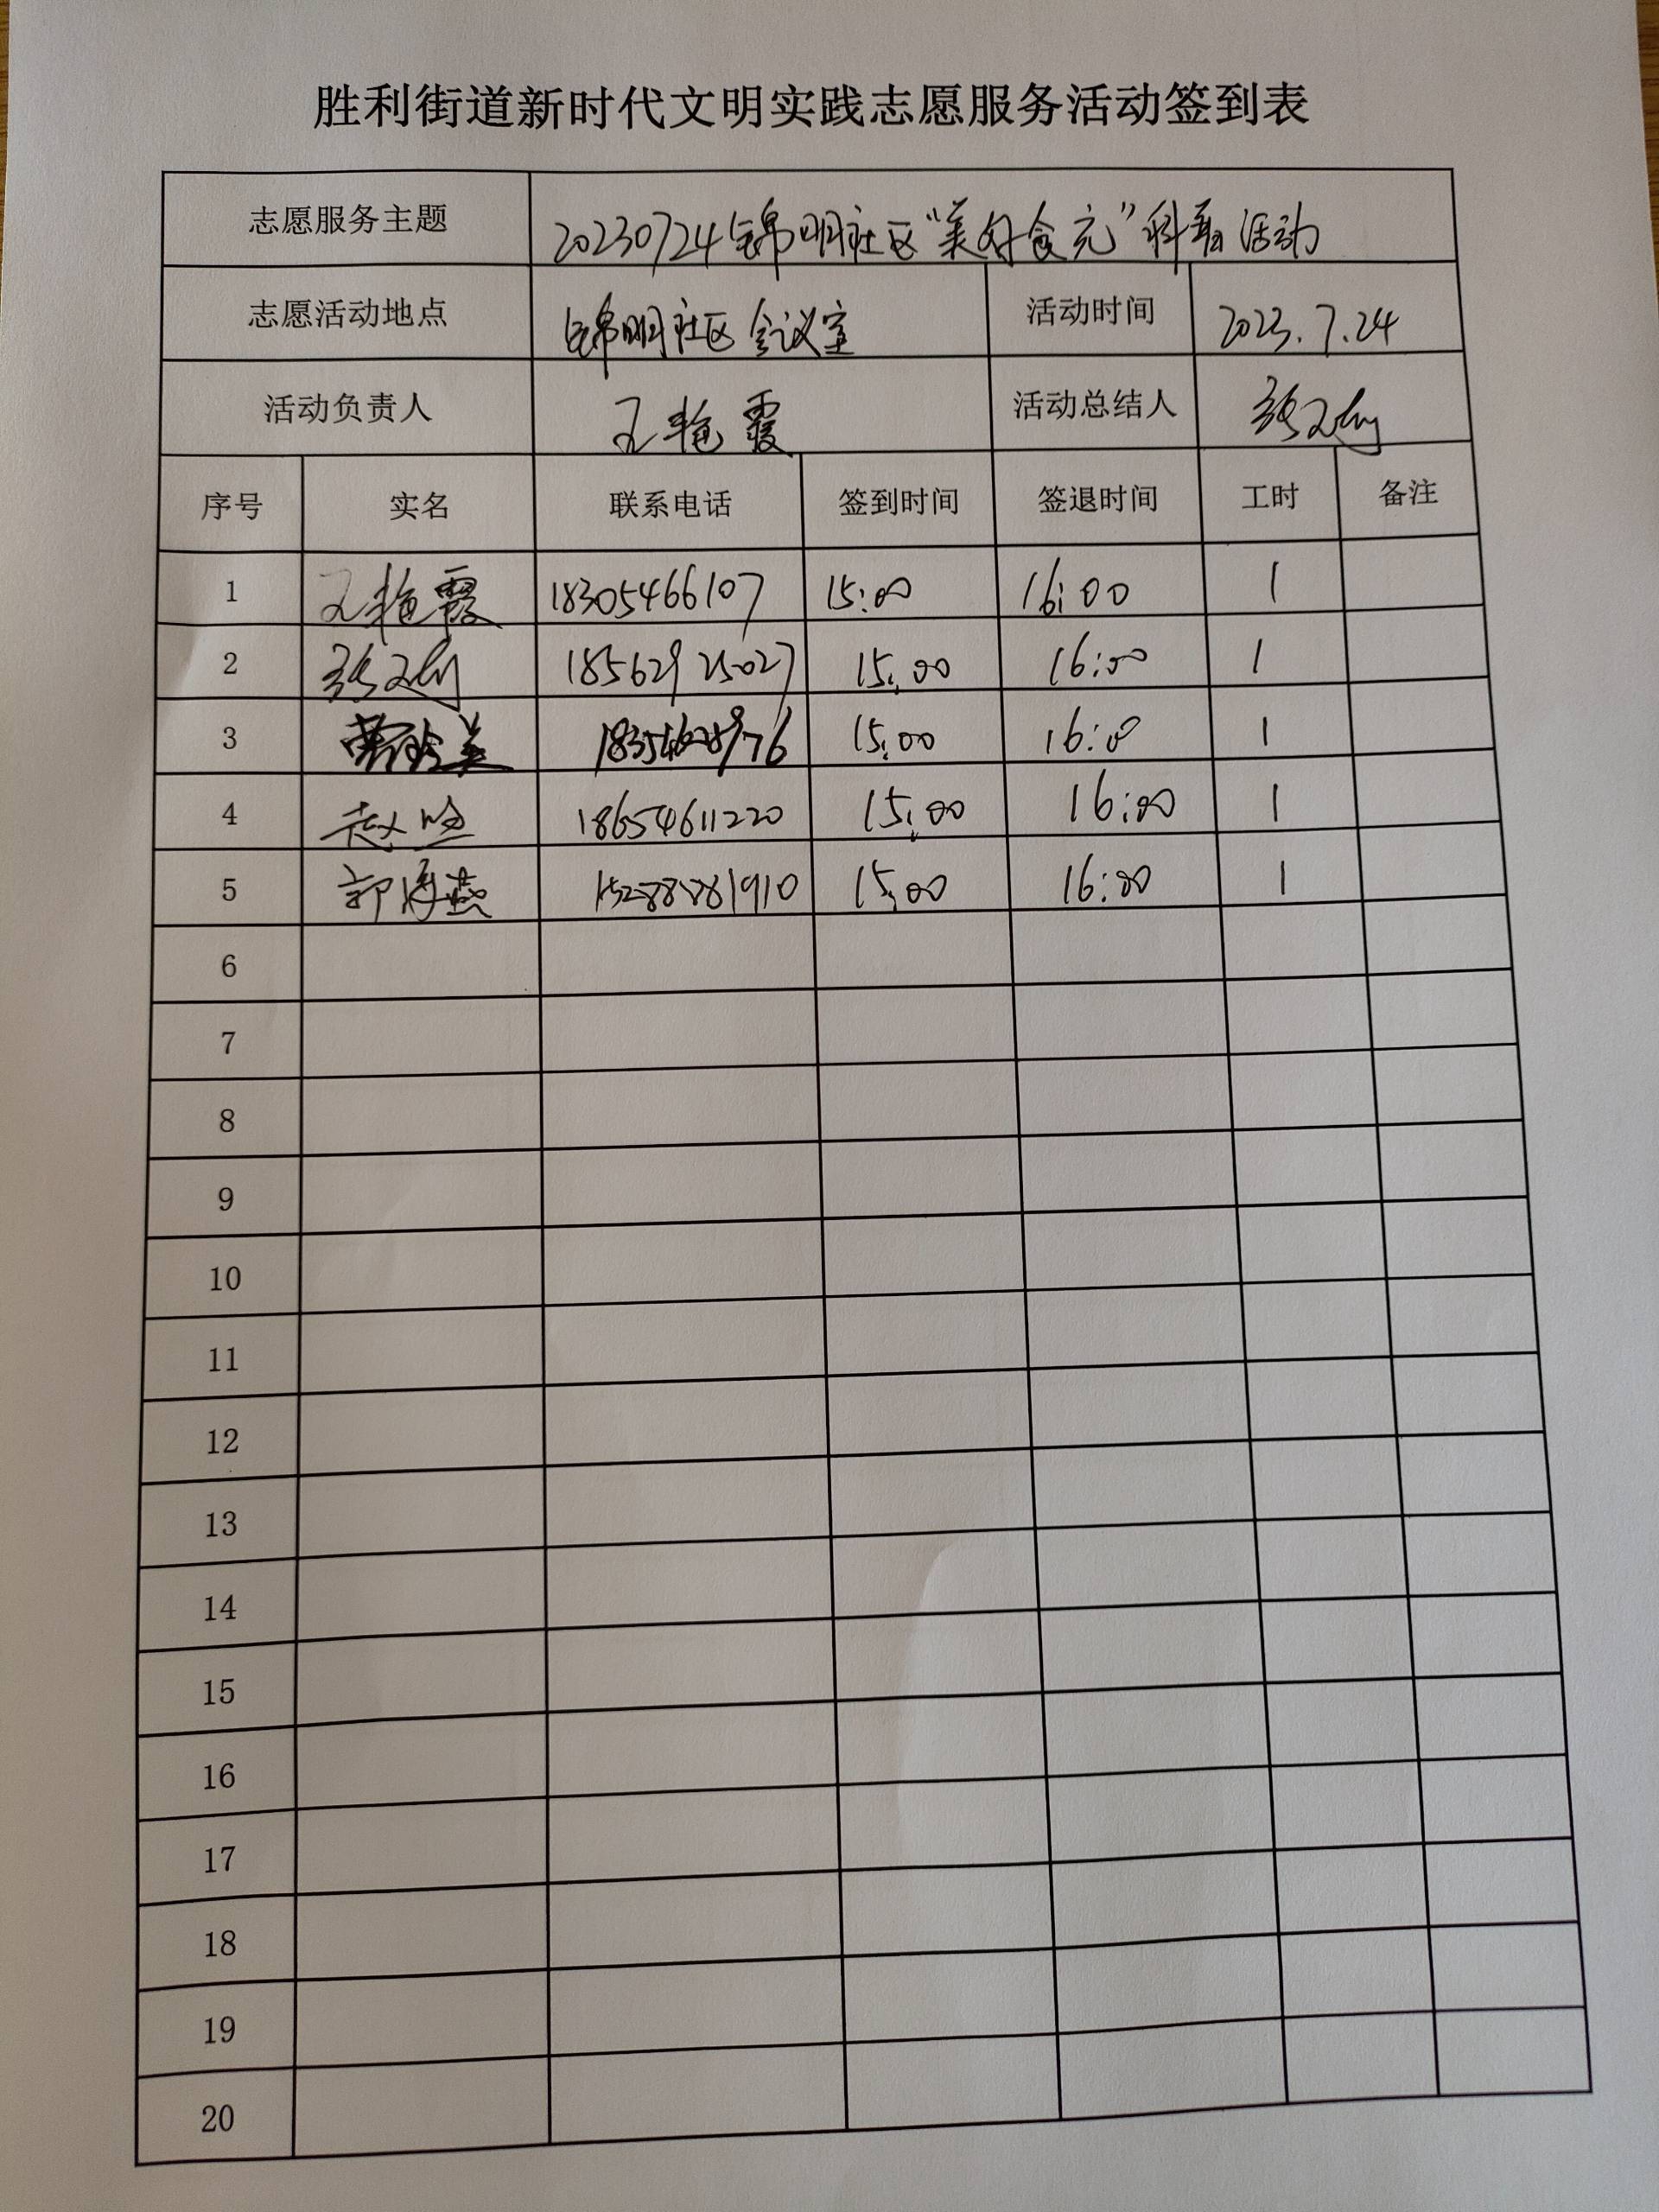 胜利街道新时代文明实践志愿服务活动签到表
志愿服务主题 20230724锦明社区“美好食充”科普活动
志愿活动地点 锦明社区会议室 活动时间 2023.7.24
活动负责人 王艳霞 活动总结人
序号 实名 联系电话 签到时间 签退时间 工时 备注
1 王艳霞 18305466107 15:00 16:00 1
2 18562925027 15:00 16:00 1
3 15:00 16:00 1
4 赵 18654611220 15:00 16:00 1
5 郭海燕 15288881910 15:00 16:00 1
6
7
8
9
10
11
12
13
14
15
16
17
18
19
20